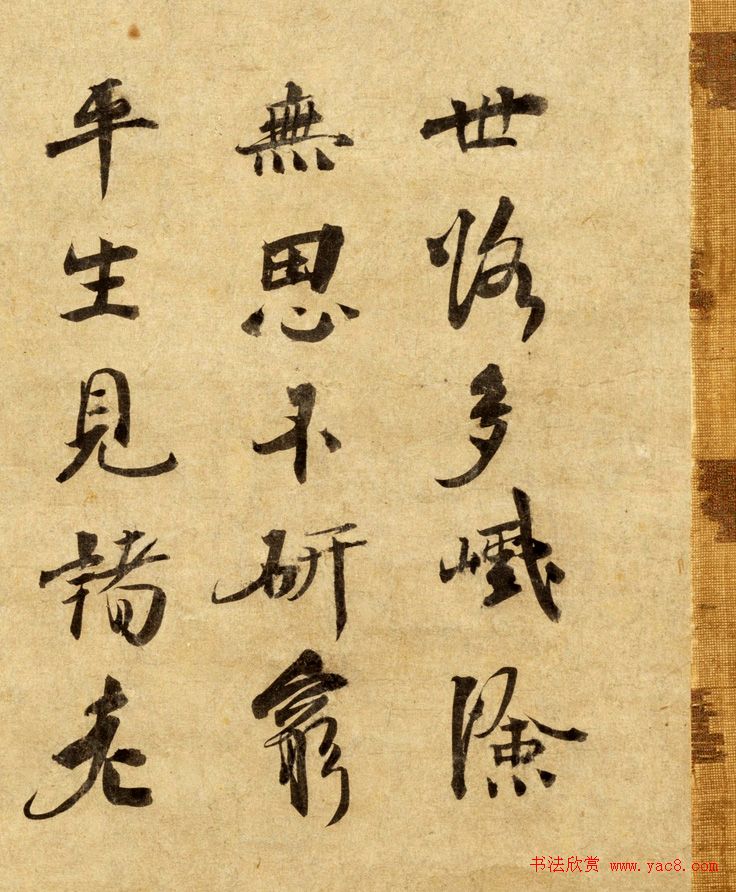 世路多巇險
無思不研窮
平生見諸老
书法欣赏 www.yac8.com